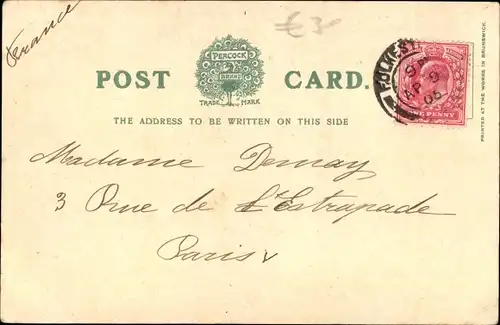 France
€ 30
PEACOCK
BRAND
TRADE MARK
POST CARD.
THE ADDRESS TO BE WRITTEN ON THIS SIDE
FOLKEST
AP 9
05
ONE PENNY
PRINTED AT THE WORKS IN BRUNSWICK.
Madame Demay
3 Rue de L'Estrapade
Paris